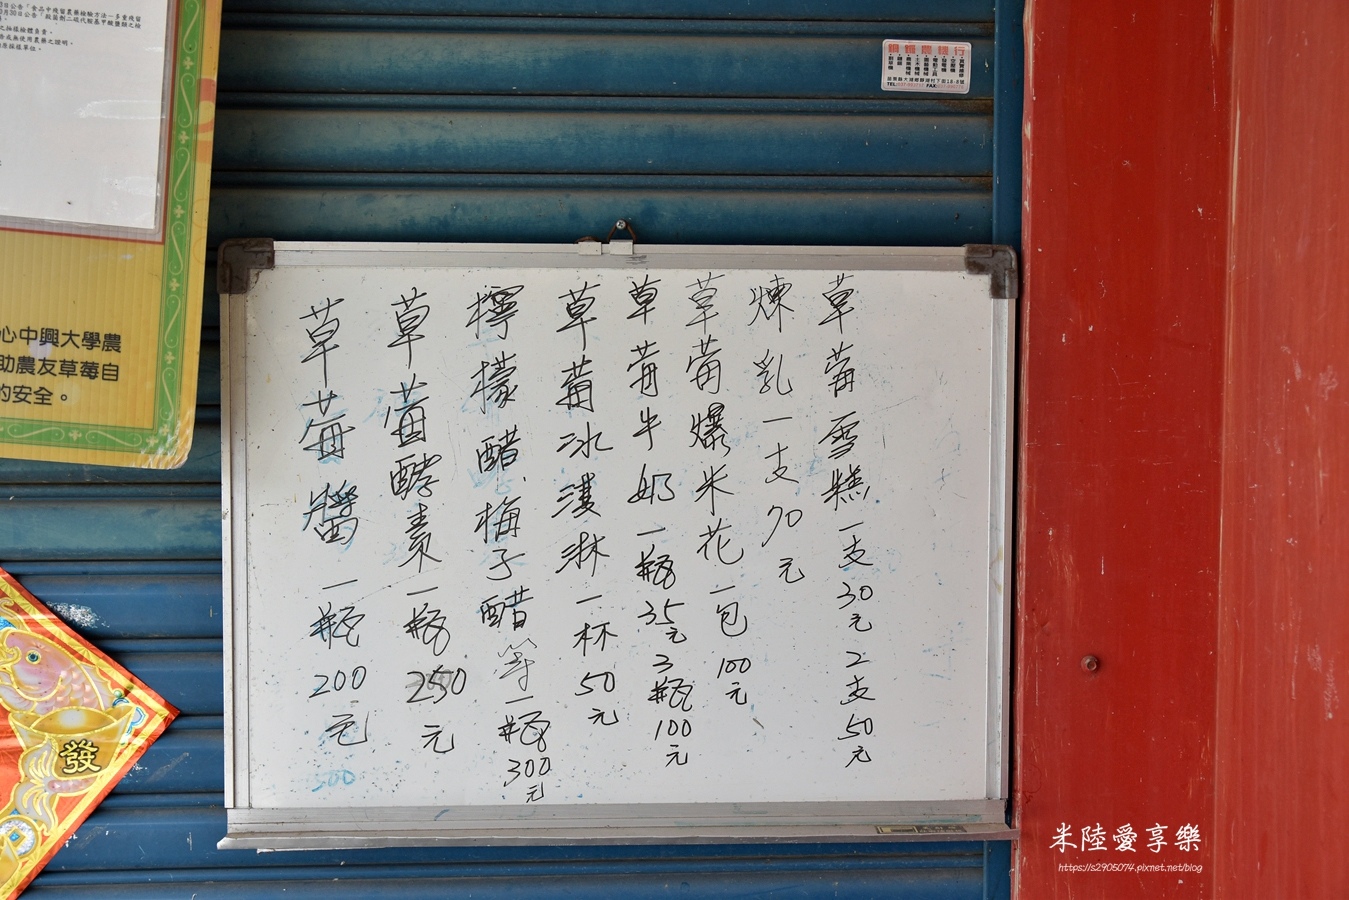 草莓雪糕一支30元2支50元
煉乳一支70元
草莓爆米花一包100元
草莓牛奶一瓶35元3瓶100元
草莓冰淇淋一杯50元
檸檬醋.梅子醋等一瓶300元
草莓酵素一瓶250元
草莓醬一瓶200元
心中興大學農
助農友草莓自
的安全。
發
米陸愛享樂
https://s2905074.pixnet.net/blog